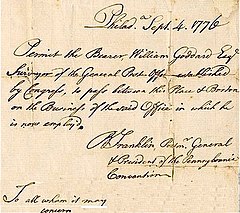 Philad.ª Sept. 4. 1776
Permit the Bearer, William Goddard Esqr
Surveyor of the General Post-Office established
by Congress, to pass between this Place & Boston
on the Business of the said Office in which he
is now employ'd.
B Franklin Postmr. General
& President of the Pennsylvania
Convention
To all whom it may
concern